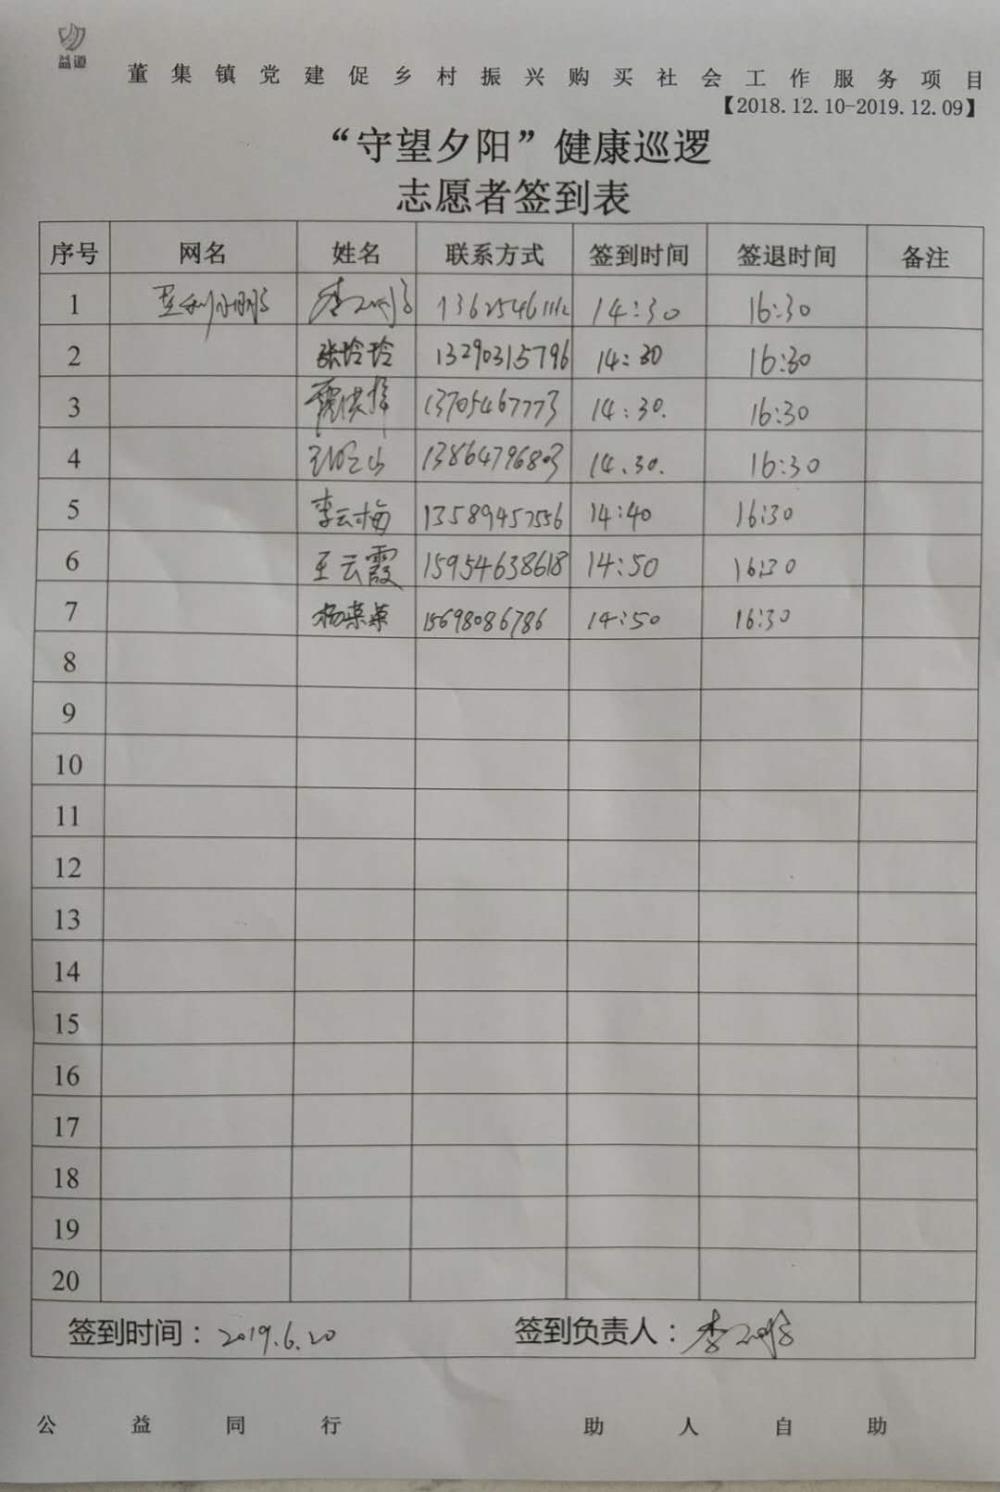 益道
董集镇党建促乡村振兴购买社会工作服务项目
【2018.12.10-2019.12.09】
“守望夕阳”健康巡逻
志愿者签到表
序号 网名 姓名 联系方式 签到时间 签退时间 备注
1 14:30 16:30
2 张玲玲 13290315796 14:30 16:30
3 13705467773 14:30. 16:30
4 13864796803 14.30. 16:30
5 李云梅 13589457556 14:40 16:30
6 王云霞 15954638618 14:50 16:30
7 杨荣荣 15698086786 14:50 16:30
8
9
10
11
12
13
14
15
16
17
18
19
20
签到时间：2019.6.20 签到负责人：
公益同行 助人自助